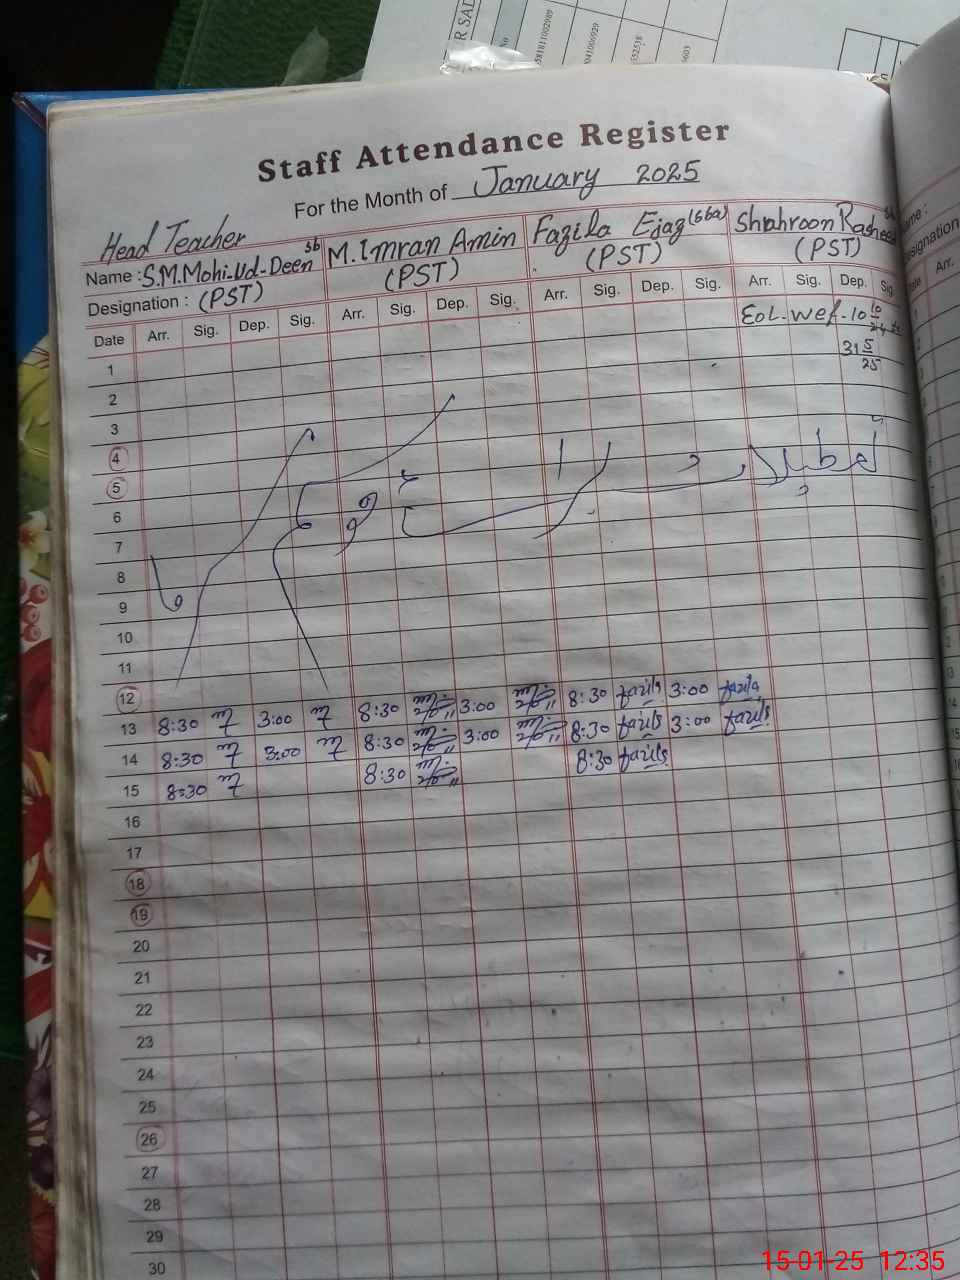 Staff Attendance Register
For the Month of January 2025
Head Teacher
Name : S.M.Mohi-Ud-Deen Sb M. Imran Amin Fazila Ejaz (Sba) Shahroon Rasheed
Designation : (PST) (PST) (PST) (PST)
Date Arr. Sig. Dep. Sig. Arr. Sig. Dep. Sig. Arr. Sig. Dep. Sig. Arr. Sig. Dep. Sig.
1 EOL-wef-10 10/24 to
2 31 5/25
3
4
5
6
7
8
9
10
11
12
13 8:30 3:00 8:30 3:00 8:30 fazila 3:00 fazila
14 8:30 3:00 8:30 3:00 8:30 fazila 3:00 fazila
15 8:30 8:30 8:30 fazila
16
17
18
19
20
21
22
23
24
25
26
27
28
29
30
15-01-25 12:35